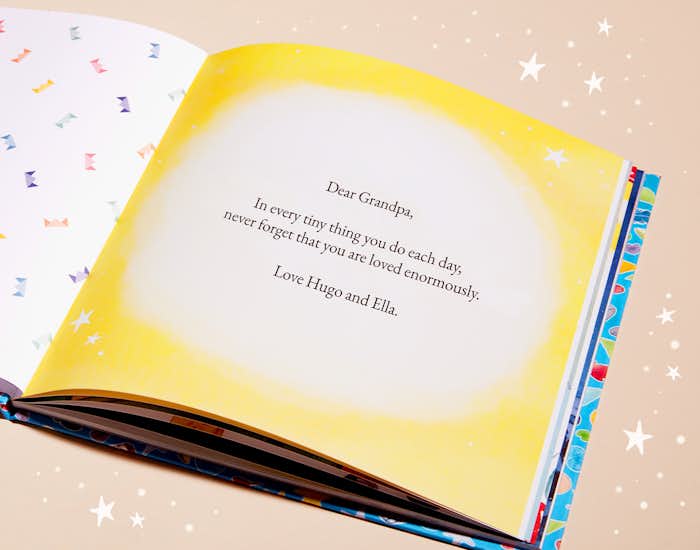 Dear Grandpa,
In every tiny thing you do each day,
never forget that you are loved enormously.
Love Hugo and Ella.